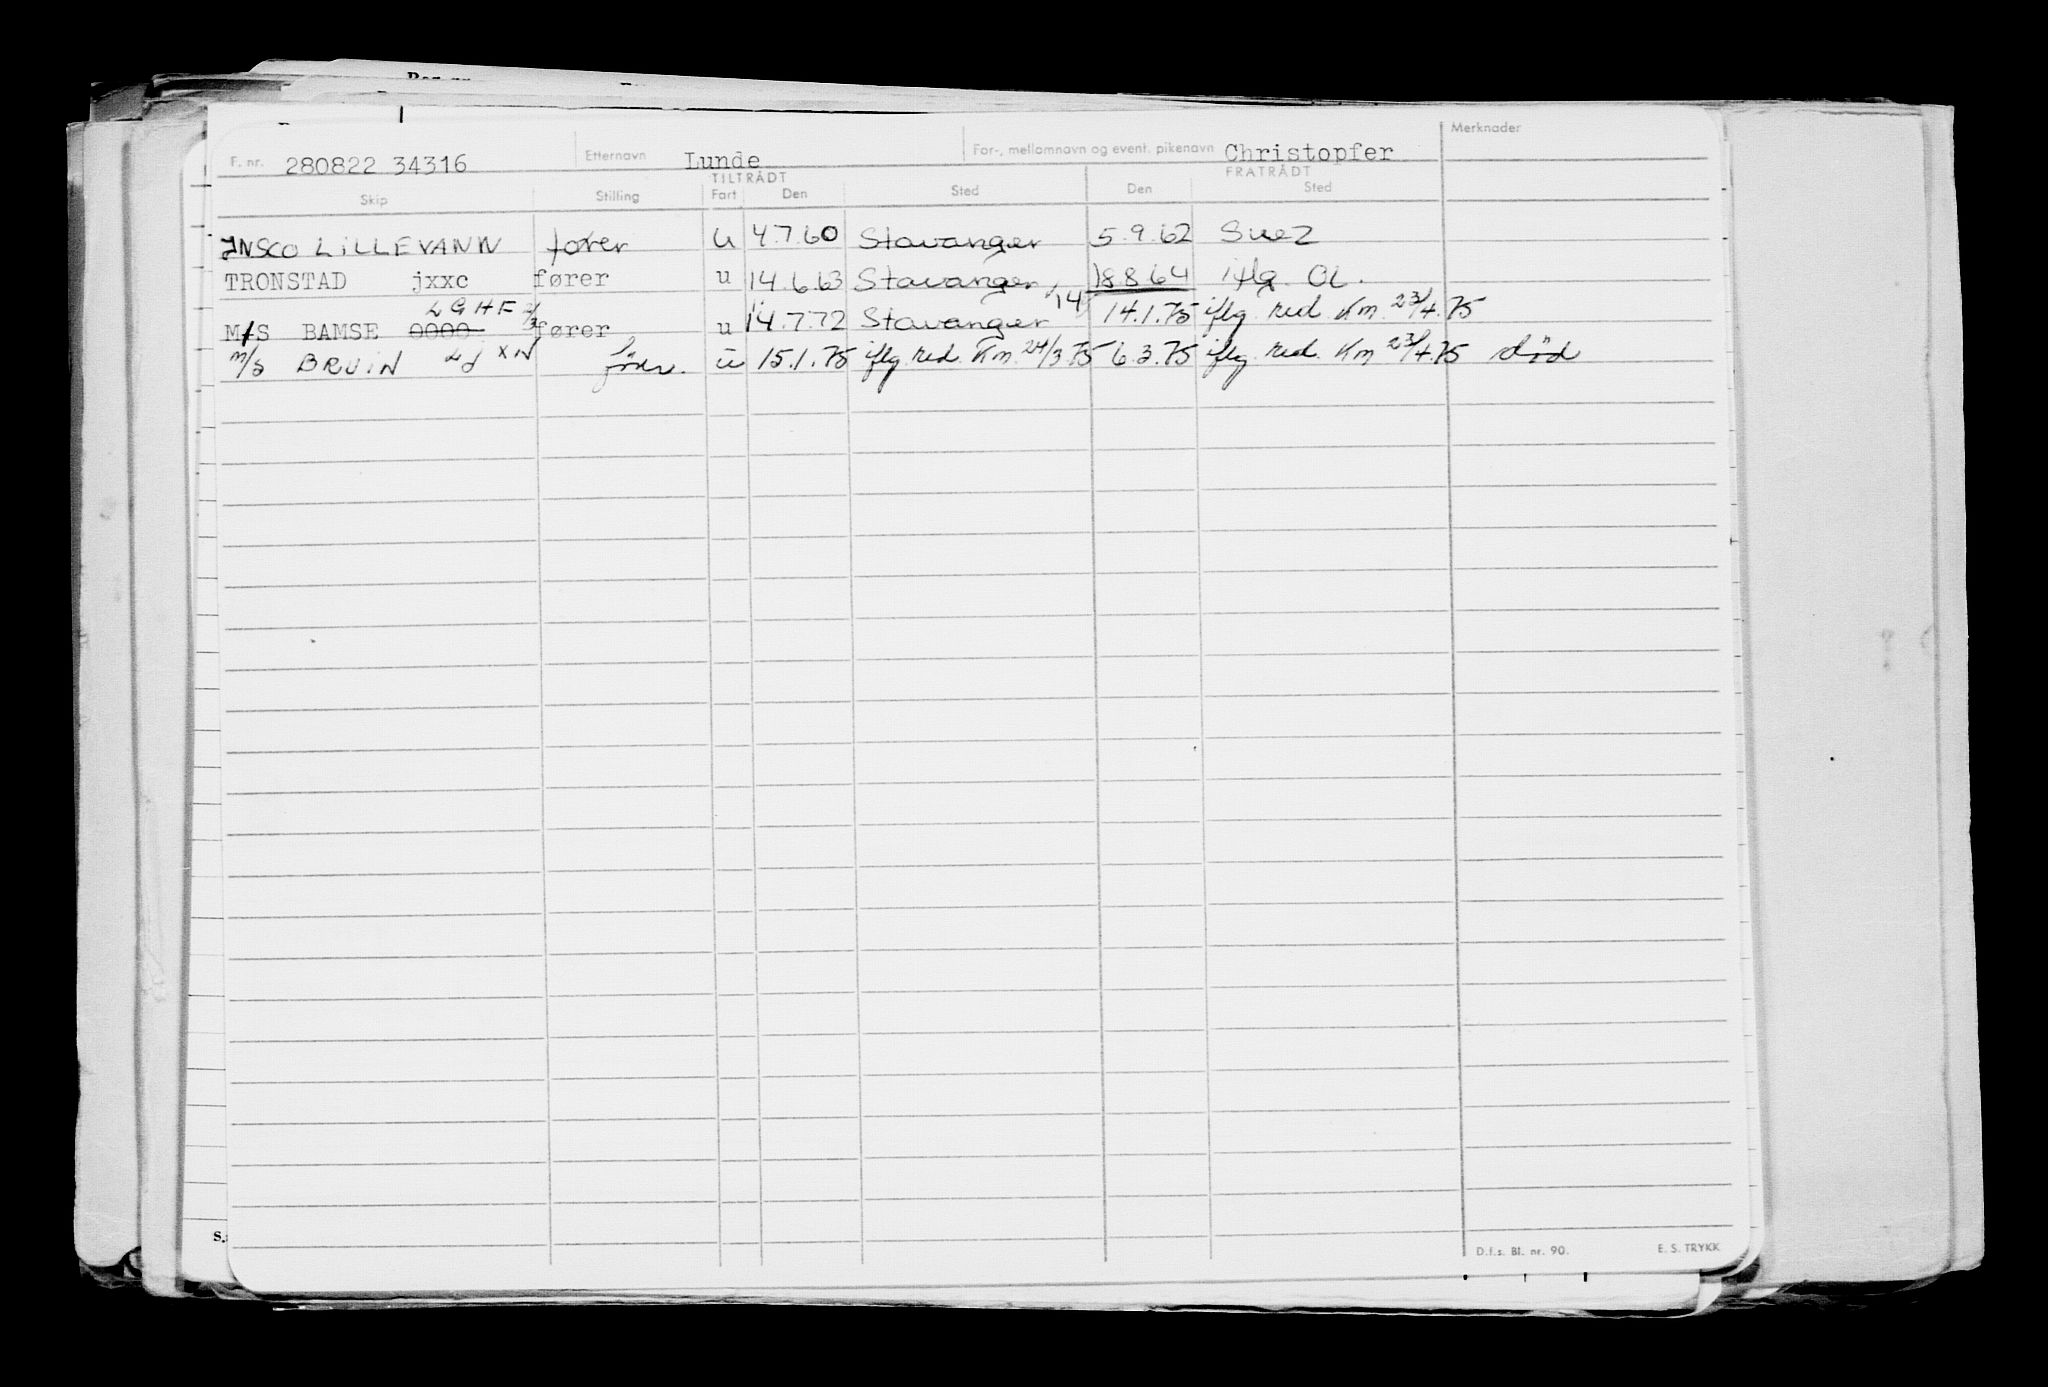 F. nr. 280822 34316 Etternavn Lunde For-, mellomnavn og event. pikenavn Christopfer Merknader
TILTRÅDT FRATRÅDT
Skip Stilling Fart Den Sted Den Sted
INSCO LILLEVANN fører u 4.7.60 Stavanger 5.9.62 Suez
TRONSTAD jxxc fører u 14.6.63 Stavanger 18.8.64 iflg. OL.
LGHF 2/3 14
M/S BAMSE 0000 fører u 14.7.72 Stavanger 14.1.75 iflg. red. Km. 23/4.75
M/S BRUIN LJXN fører. u 15.1.75 iflg. red. Km. 24/3.75 6.3.75 iflg. red. Km 23/4.75 død
D.f.s. Bl. nr. 90. E. S. TRYKK